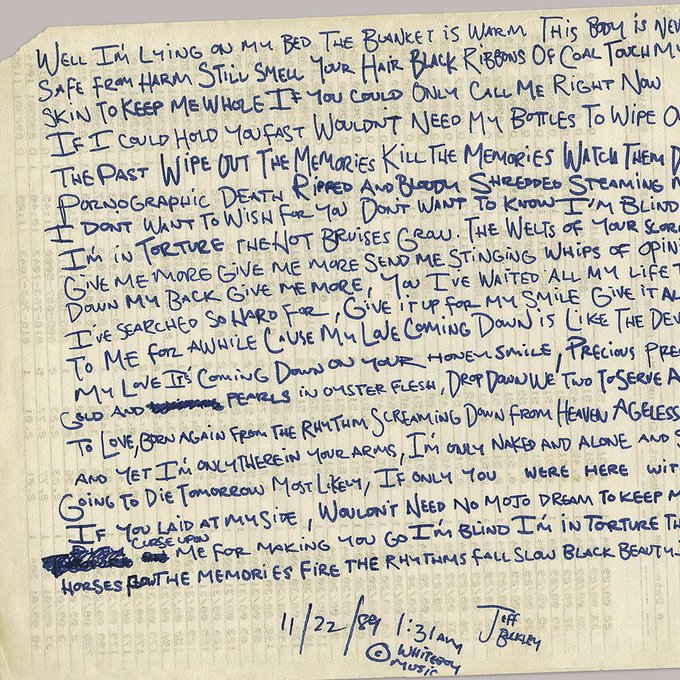 WELL I'M LYING ON MY BED THE BLANKET IS WARM THIS BODY IS NEV
SAFE FROM HARM STILL SMELL YOUR HAIR BLACK RIBBONS OF COAL TOUCH MY
SKIN TO KEEP ME WHOLE IF YOU COULD ONLY CALL ME RIGHT NOW
IF I COULD HOLD YOU FAST WOULDN'T NEED MY BOTTLES TO WIPE O
THE PAST WIPE OUT THE MEMORIES KILL THE MEMORIES WATCH THEM D
PORNOGRAPHIC DEATH RIPPED AND BLOODY SHREDDED STEAMING M
I DONT WANT TO WISH FOR YOU DONT WANT TO KNOW I'M BLIND
I'M IN TORTURE THE HOT BRUISES GROW. THE WELTS OF YOUR SCOR
GIVE ME MORE GIVE ME MORE SEND ME STINGING WHIPS OF OPIN
DOWN MY BACK GIVE ME MORE, YOU I'VE WAITED ALL MY LIFE T
I'VE SEARCHED SO HARD FOR, GIVE IT UP FOR MY SMILE GIVE IT AL
TO ME FOR AWHILE CAUSE MY LOVE COMING DOWN IS LIKE THE DEV
MY LOVE IT'S COMING DOWN ON YOUR HONEY SMILE, PRECIOUS PRE
GOLD AND PEARLS IN OYSTER FLESH, DROP DOWN WE TWO TO SERVE A
TO LOVE, BORN AGAIN FROM THE RHYTHM SCREAMING DOWN FROM HEAVEN AGELESS
AND YET I'M ONLY THERE IN YOUR ARMS, I'M ONLY NAKED AND ALONE AND S
GOING TO DIE TOMORROW MOST LIKELY, IF ONLY YOU WERE HERE WIT
IF YOU LAID AT MY SIDE, WOULDN'T NEED NO MOJO DREAM TO KEEP M
CURSE UPON ME FOR MAKING YOU GO I'M BLIND I'M IN TORTURE TH
HORSES THE MEMORIES FIRE THE RHYTHMS FALL SLOW BLACK BEAUTY
11/22/89 1:31AM JEFF BUCKLEY
© WHITEBOY MUSIC